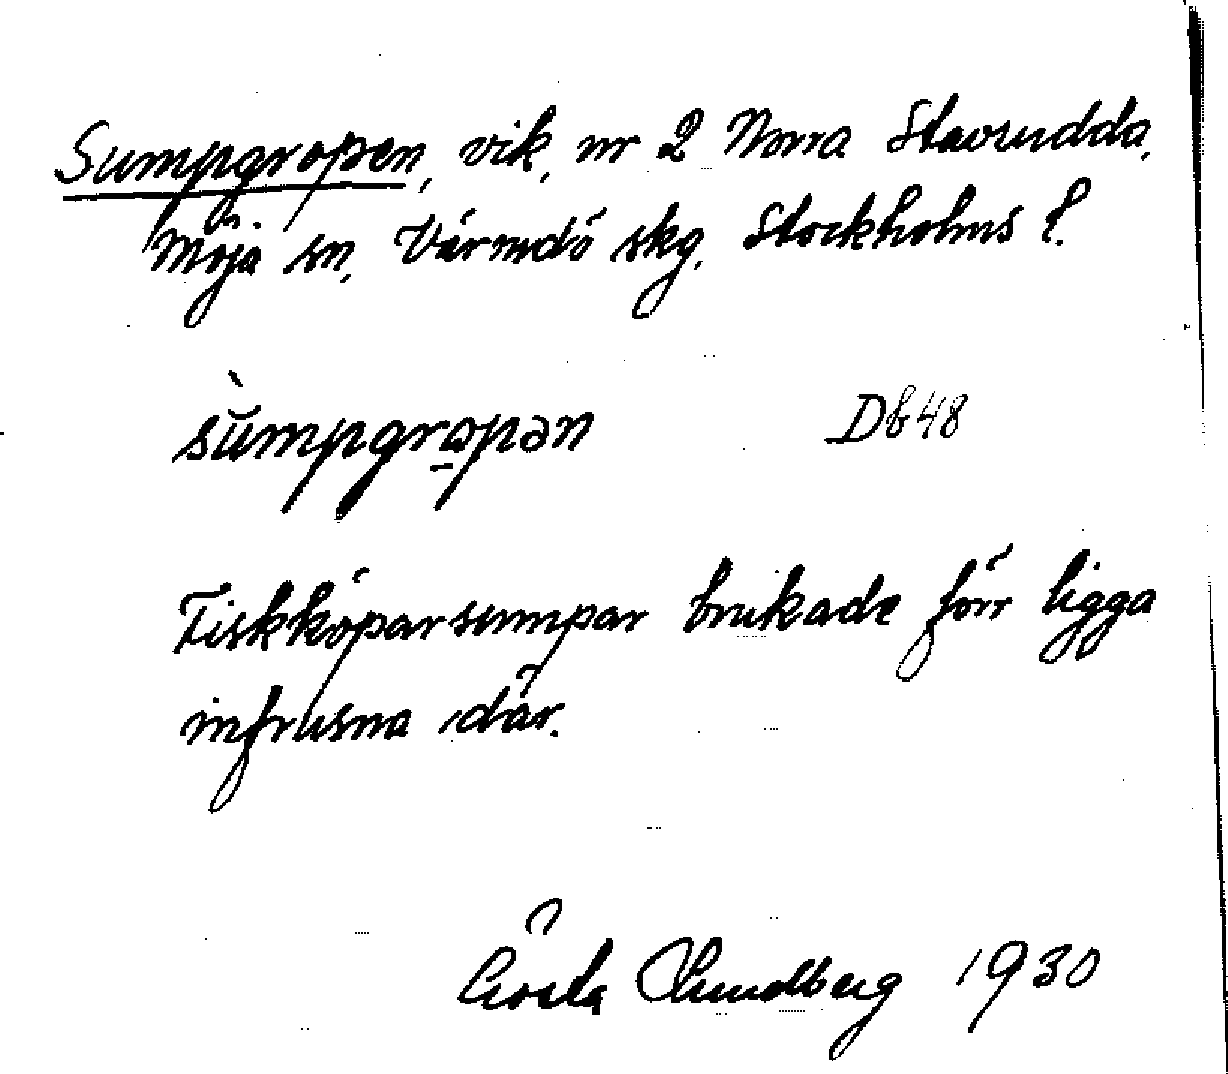 Sumpgropen, vik, nr 2 Norra Stavsudda,
Möja sn, Värmdö skg, Stockholms l.
sumpgropən D648
Fiskköparsumpar brukade förr ligga
infrusna där.
Gösta Lundberg 1930